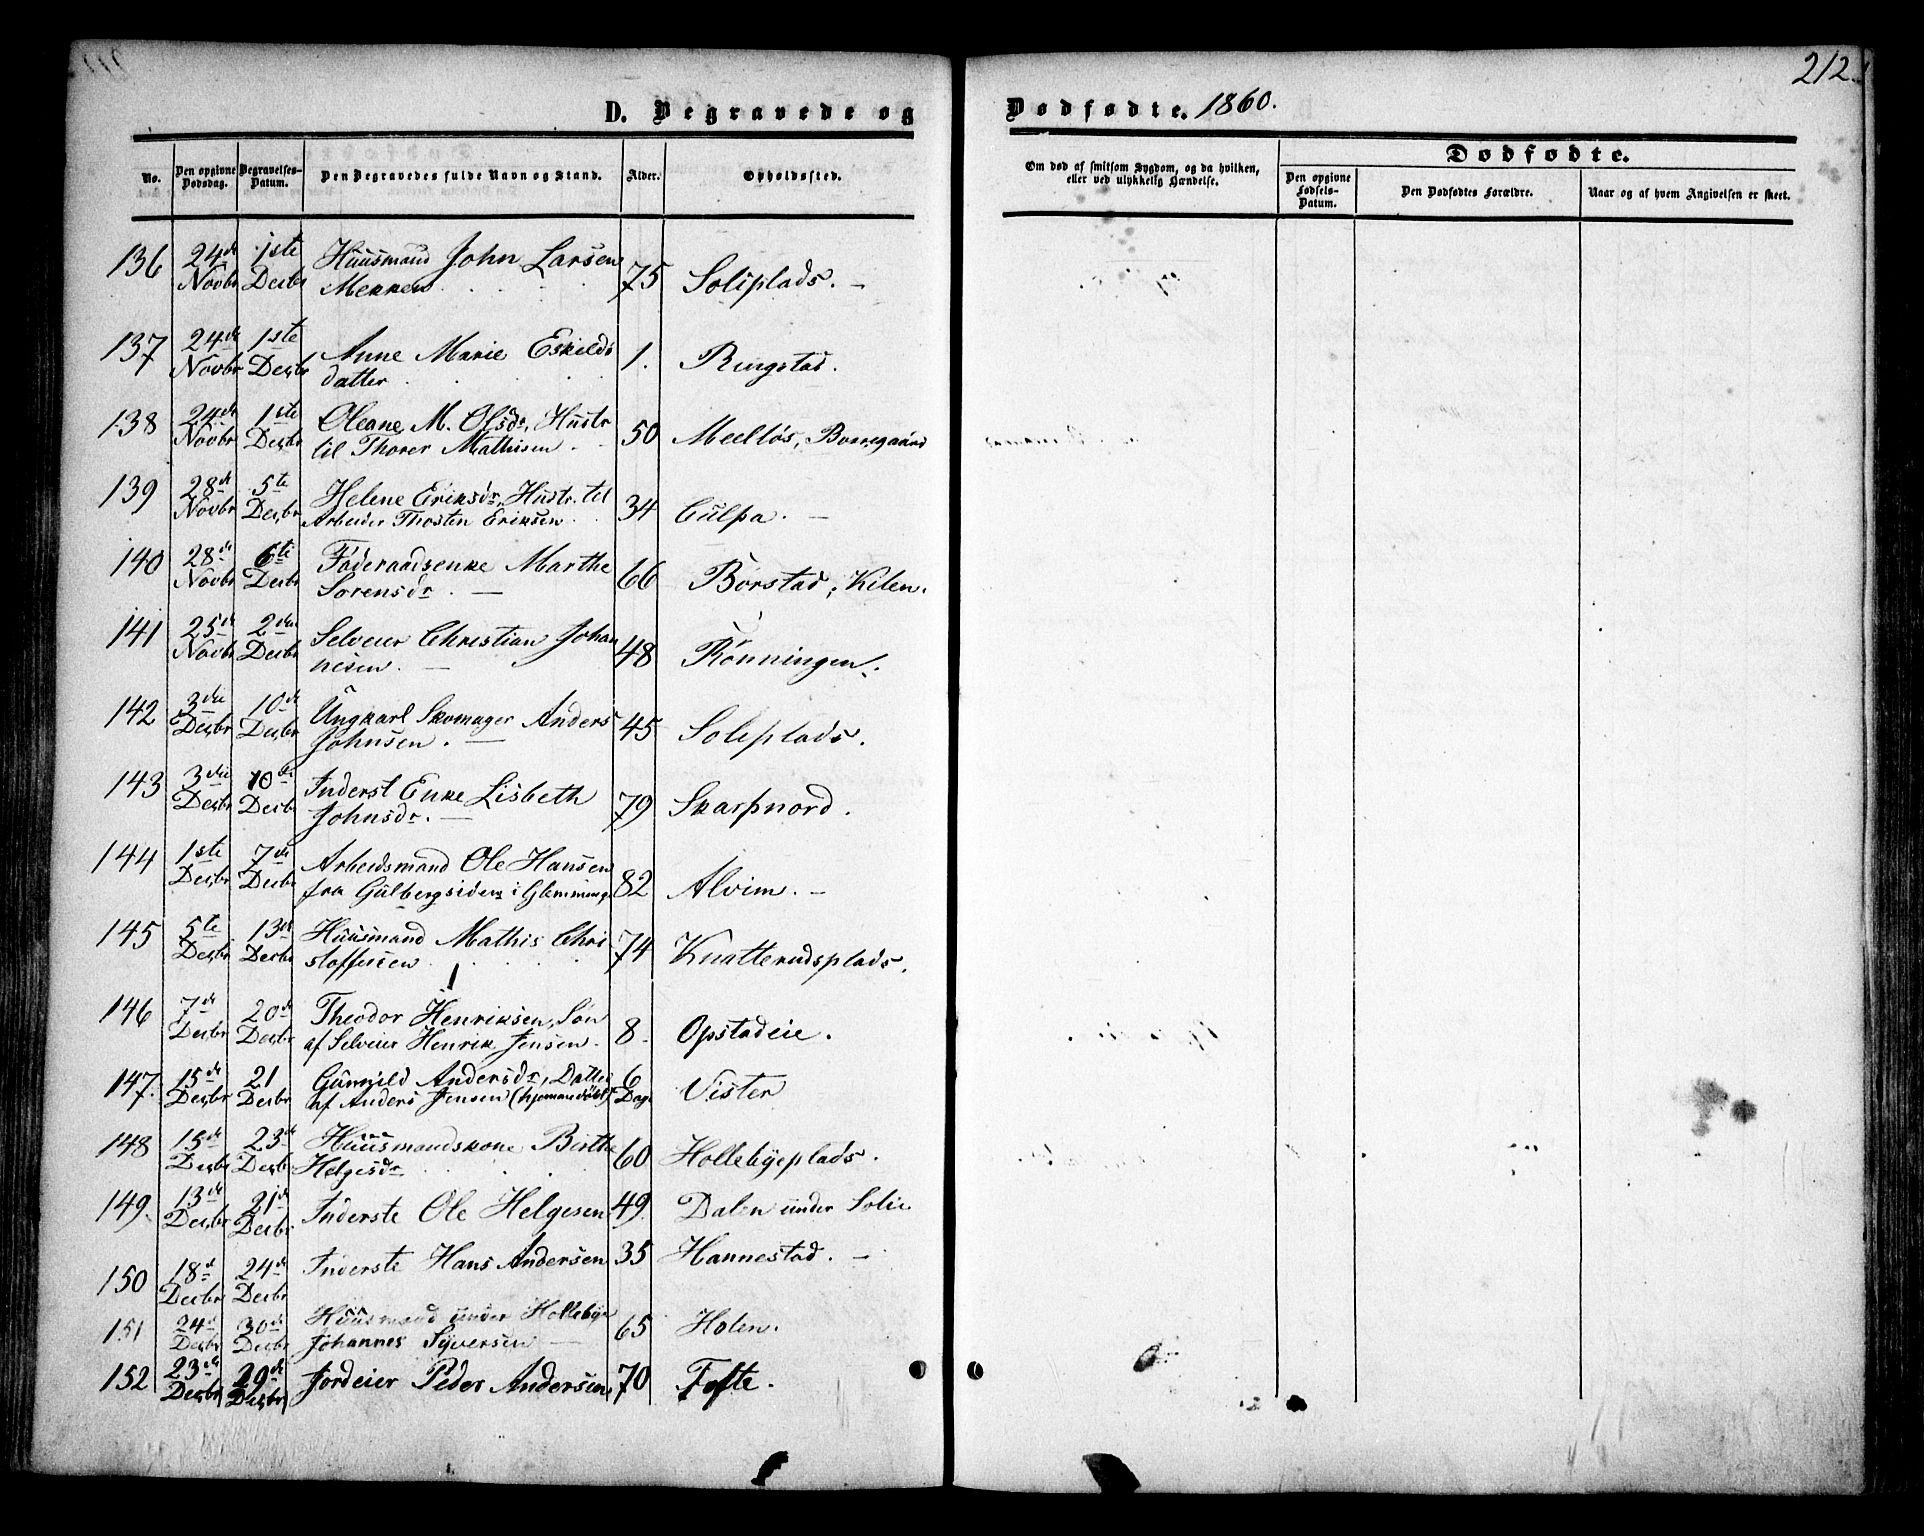 212.
D. Begravede og Dødfødte. 1860.
No. Den opgivne Dødsdag. Begravelses-Datum. Den Begravedes fulde Navn og Stand. Alder. Opholdssted. Om død af smitsom Sygdom, og da hvilken, eller ved ulykkelig Hændelse. Dødfødte.
Den opgivne Fødsels-Datum. Den Dødfødtes Forældre. Naar og af hvem Angivelsen er skeet.
136 24de 1ste Huusmand John Larsen
Novbr Decbr 75 Soliplads. —
137 24de 1ste Anne Marie Eskilds
Novbr Decbr datter 1. Ringstad.
138 24de 1ste Oleane M. Olsdr, Hustr
Novbr Decbr til Thorer Mathisen 50 Meelløs, Borregaard
139 28de 5te Helene Eriksdr, Hustr. til
Novbr Decbr Arbeider Thosten Eriksen 34 Culpa. —
140 28de 6te Føderaadsenke Marthe
Novbr Decbr Sorensdr. — 66 Borstad, Kilen.
141 25de 2den Selveier Christian Johan
Novbr Decbr nesen. — 48 Rønningen.
142 3die 10de Ungkarl Skomager Anders
Decbr Decbr Johnsen. — 45 Soliplads.
143 3die 10de Inderst Enke Lisbeth
Decbr Decbr Johnsdr. — 79 Skarpnord.
144 1ste 7de Arbeidsmand Ole Hansen
Decbr Decbr fra Gulbergsiden i Glemminge 82 Alvim. —
145 5te 13de Huusmand Mathis Chri
Decbr Decbr stoffersen 74 Knatterudsplads.
146 7de 20de Theodor Henriksen, Søn
Decbr Decbr af Selveier Henrik Jensen. 8. Opstadeie.
147. 15de 21 Gunnild Andersdr, Datter 6
Decbr Decbr af Anders Jensen (hjemmedøbt) Dage Vister
148 15de 23de Huusmandskone Birthe
Decbr Decbr Helgesdr 60 Hollebyeplads.
149. 13de 21de Inderste Ole Helgesen 49. Dalen under Solie
Decbr Decbr
150 18de 24de Inderste Hans Andersen 35 Hannestad. —
Decbr Decbr
151 24de 30de Huusmand under Hollebye
Decbr Decbr Johannes Syversen — 65 Holen.
152 23de 29de Jordeier Peder Andersen 70 Tofte.
Decbr Decbr